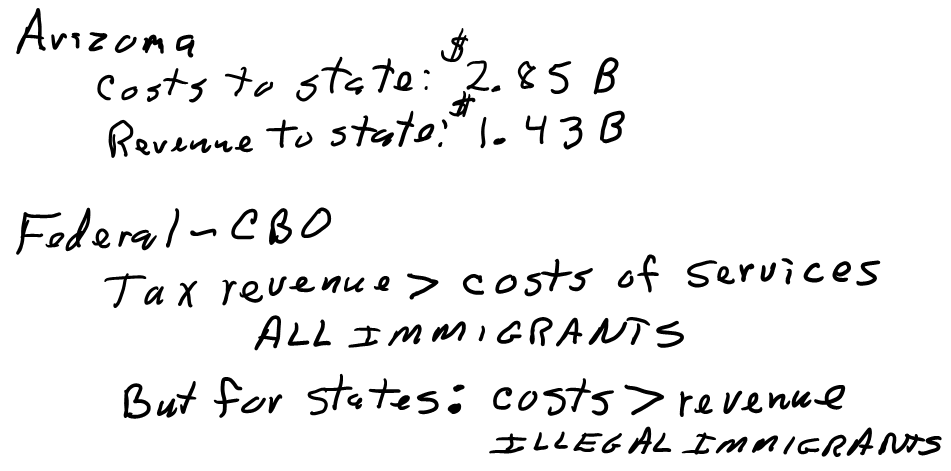 Arizona
Costs to state: $2.85 B
Revenue to state: $1.43 B
Federal - CBO
Tax revenue > costs of services
ALL IMMIGRANTS
But for states: costs > revenue
ILLEGAL IMMIGRANTS